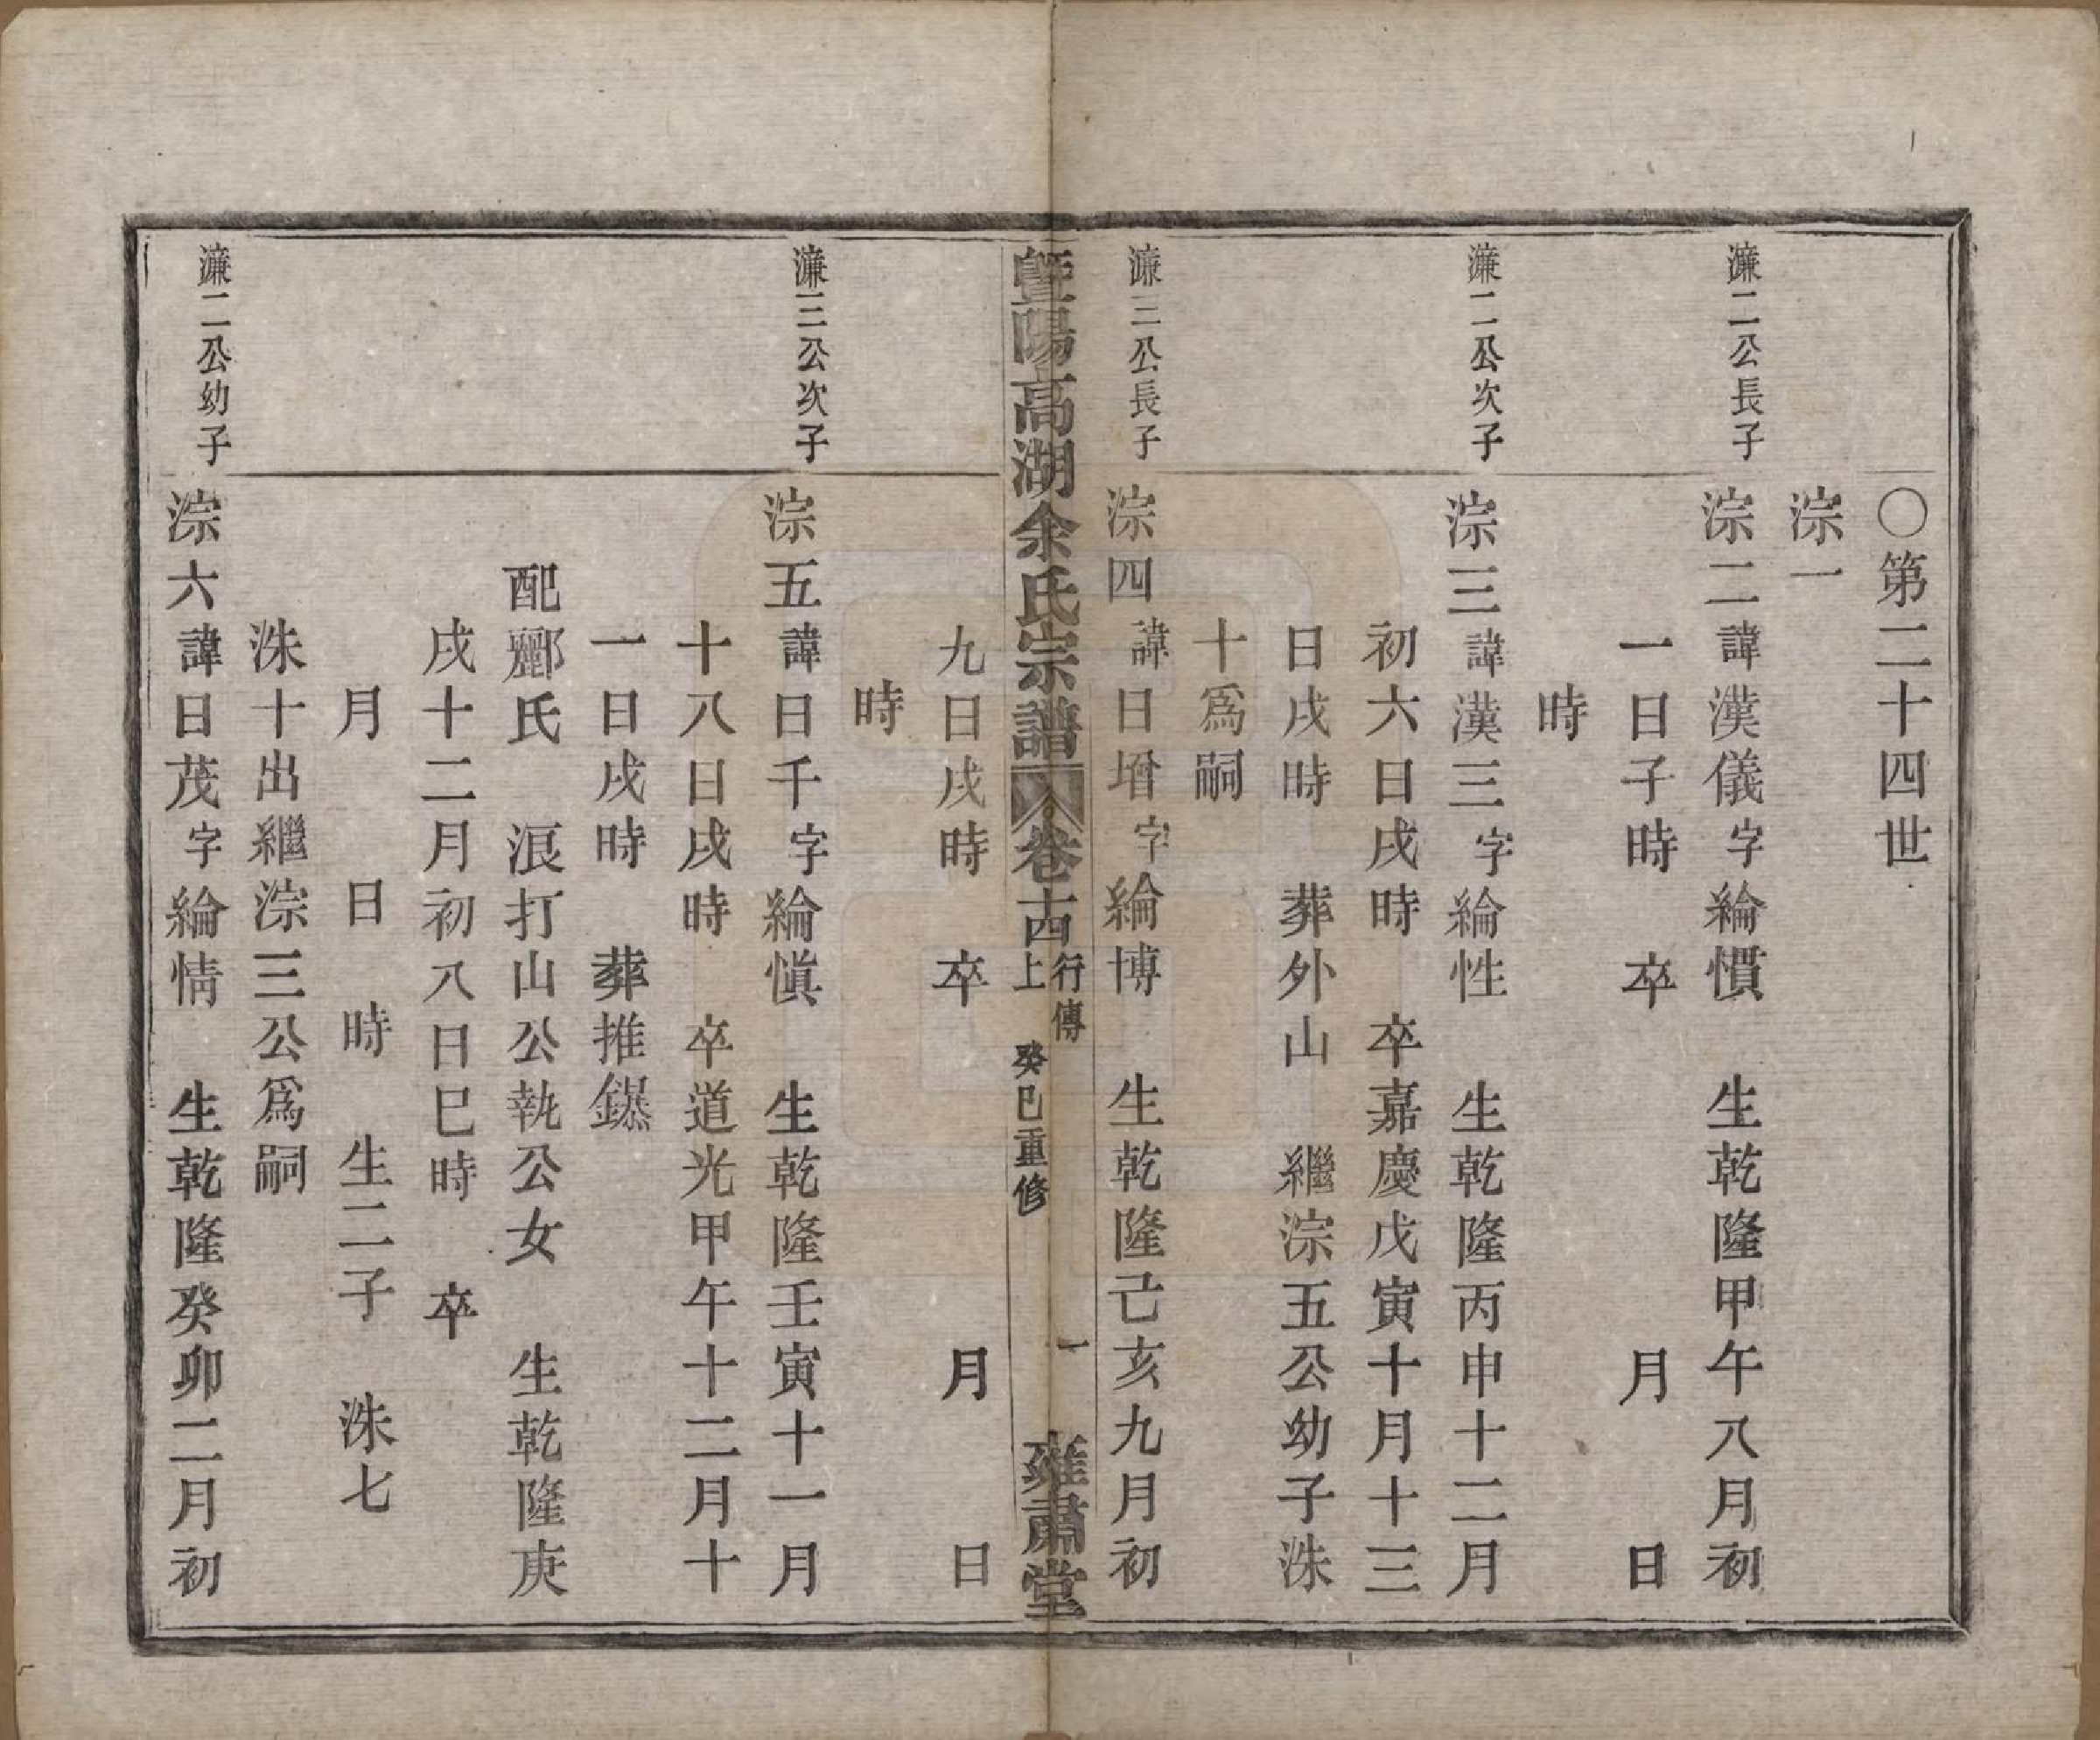 〇第二十四世
淙一
濂二公長子
淙二諱漢儀字綸慣　生乾隆甲午八月初
一日子時　卒　月　日
時
濂二公次子
淙三諱漢三字綸性　生乾隆丙申十二月
初六日戌時　卒嘉慶戊寅十月十三
日戌時　葬外山　繼淙五公幼子洙
十爲嗣
濂三公長子
淙四諱日增字綸博　生乾隆己亥九月初
暨陽高湖余氏宗譜　卷十四上　行傳　癸巳重修　一　雍肅堂
九日戌時　卒　月　日
時
濂三公次子
淙五諱日千字綸愼　生乾隆壬寅十一月
十八日戌時　卒道光甲午十二月十
一日戌時　葬推鑤
配酈氏　浪打山公執公女　生乾隆庚
戌十二月初八日巳時　卒
月　日　時　生二子　洙七
洙十出繼淙三公爲嗣
濂二公幼子
淙六諱日茂字綸情　生乾隆癸卯二月初